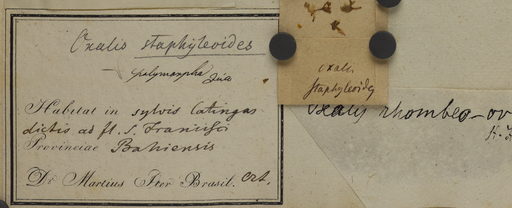 Oxalis staphyleoides
polymorpha Zuc
Habitat in sylvis Catingas
dictis ad fl. S. Francisci
Provinciae Bahiensis
Dr. Martius Iter Brasil. Oct.
oxalis
staphyleoides
Oxalis rhombeo-ov